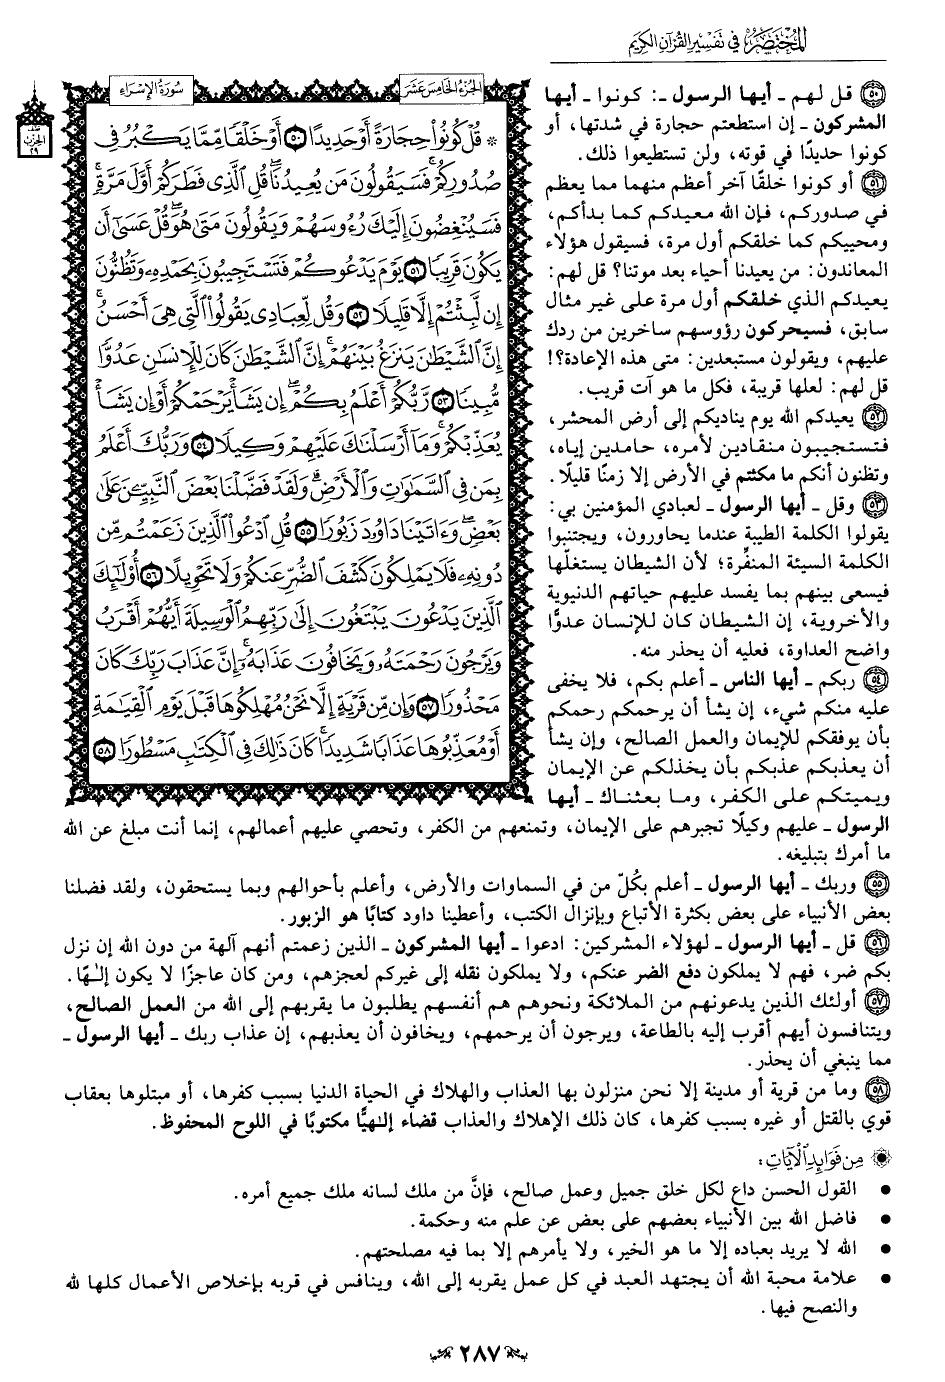 المختصر في تفسير القرآن الكريم
الجزء الخامس عشر
سورة الإسراء
الحزب ٢٩
* قُلْ كُونُوا۟ حِجَارَةً أَوْ حَدِيدًا ٥٠ أَوْ خَلْقًا مِّمَّا يَكْبُرُ فِى
صُدُورِكُمْ ۚ فَسَيَقُولُونَ مَن يُعِيدُنَا ۖ قُلِ ٱلَّذِى فَطَرَكُمْ أَوَّلَ مَرَّةٍ ۚ
فَسَيُنْغِضُونَ إِلَيْكَ رُءُوسَهُمْ وَيَقُولُونَ مَتَىٰ هُوَ ۖ قُلْ عَسَىٰٓ أَن
يَكُونَ قَرِيبًا ٥١ يَوْمَ يَدْعُوكُمْ فَتَسْتَجِيبُونَ بِحَمْدِهِۦ وَتَظُنُّونَ
إِن لَّبِثْتُمْ إِلَّا قَلِيلًا ٥٢ وَقُل لِّعِبَادِى يَقُولُوا۟ ٱلَّتِى هِىَ أَحْسَنُ ۚ
إِنَّ ٱلشَّيْطَٰنَ يَنزَغُ بَيْنَهُمْ ۚ إِنَّ ٱلشَّيْطَٰنَ كَانَ لِلْإِنسَٰنِ عَدُوًّا
مُّبِينًا ٥٣ رَّبُّكُمْ أَعْلَمُ بِكُمْ ۖ إِن يَشَأْ يَرْحَمْكُمْ أَوْ إِن يَشَأْ
يُعَذِّبْكُمْ ۚ وَمَآ أَرْسَلْنَٰكَ عَلَيْهِمْ وَكِيلًا ٥٤ وَرَبُّكَ أَعْلَمُ
بِمَن فِى ٱلسَّمَٰوَٰتِ وَٱلْأَرْضِ ۗ وَلَقَدْ فَضَّلْنَا بَعْضَ ٱلنَّبِيِّـۧنَ عَلَىٰ
بَعْضٍ ۖ وَءَاتَيْنَا دَاوُۥدَ زَبُورًا ٥٥ قُلِ ٱدْعُوا۟ ٱلَّذِينَ زَعَمْتُم مِّن
دُونِهِۦ فَلَا يَمْلِكُونَ كَشْفَ ٱلضُّرِّ عَنكُمْ وَلَا تَحْوِيلًا ٥٦ أُو۟لَٰٓئِكَ
ٱلَّذِينَ يَدْعُونَ يَبْتَغُونَ إِلَىٰ رَبِّهِمُ ٱلْوَسِيلَةَ أَيُّهُمْ أَقْرَبُ
وَيَرْجُونَ رَحْمَتَهُۥ وَيَخَافُونَ عَذَابَهُۥٓ ۚ إِنَّ عَذَابَ رَبِّكَ كَانَ
مَحْذُورًا ٥٧ وَإِن مِّن قَرْيَةٍ إِلَّا نَحْنُ مُهْلِكُوهَا قَبْلَ يَوْمِ ٱلْقِيَٰمَةِ
أَوْ مُعَذِّبُوهَا عَذَابًا شَدِيدًا ۚ كَانَ ذَٰلِكَ فِى ٱلْكِتَٰبِ مَسْطُورًا ٥٨
٥٠ قل لهم ـ أيها الرسول ـ: كونوا ـ أيها
المشركون ـ إن استطعتم حجارة في شدتها، أو
كونوا حديدًا في قوته، ولن تستطيعوا ذلك.
٥١ أو كونوا خلقًا آخر أعظم منهما مما يعظم
في صدوركم، فإن الله معيدكم كما بدأكم،
ومحييكم كما خلقكم أول مرة، فسيقول هؤلاء
المعاندون: من يعيدنا أحياء بعد موتنا؟ قل لهم:
يعيدكم الذي خلقكم أول مرة على غير مثال
سابق، فسيحركون رؤوسهم ساخرين من ردك
عليهم، ويقولون مستبعدين: متى هذه الإعادة؟!
قل لهم: لعلها قريبة، فكل ما هو آت قريب.
٥٢ يعيدكم الله يوم يناديكم إلى أرض المحشر،
فتستجيبون منقادين لأمره، حامدين إياه،
وتظنون أنكم ما مكثتم في الأرض إلا زمنًا قليلًا.
٥٣ وقل ـ أيها الرسول ـ لعبادي المؤمنين بي:
يقولوا الكلمة الطيبة عندما يحاورون، ويجتنبوا
الكلمة السيئة المنفّرة؛ لأن الشيطان يستغلّها
فيسعى بينهم بما يفسد عليهم حياتهم الدنيوية
والأخروية، إن الشيطان كان للإنسان عدوًّا
واضح العداوة، فعليه أن يحذر منه.
٥٤ ربكم ـ أيها الناس ـ أعلم بكم، فلا يخفى
عليه منكم شيء، إن يشأ أن يرحمكم رحمكم
بأن يوفقكم للإيمان والعمل الصالح، وإن يشأ
أن يعذبكم عذبكم بأن يخذلكم عن الإيمان
ويميتكم على الكفر، وما بعثناك ـ أيها
الرسول ـ عليهم وكيلًا تجبرهم على الإيمان، وتمنعهم من الكفر، وتحصي عليهم أعمالهم، إنما أنت مبلغ عن الله
ما أمرك بتبليغه.
٥٥ وربك ـ أيها الرسول ـ أعلم بكُلّ من في السماوات والأرض، وأعلم بأحوالهم وبما يستحقون، ولقد فضلنا
بعض الأنبياء على بعض بكثرة الأتباع وبإنزال الكتب، وأعطينا داود كتابًا هو الزبور.
٥٦ قل ـ أيها الرسول ـ لهؤلاء المشركين: ادعوا ـ أيها المشركون ـ الذين زعمتم أنهم آلهة من دون الله إن نزل
بكم ضر، فهم لا يملكون دفع الضر عنكم، ولا يملكون نقله إلى غيركم لعجزهم، ومن كان عاجزًا لا يكون إلـٰهًا.
٥٧ أولئك الذين يدعونهم من الملائكة ونحوهم هم أنفسهم يطلبون ما يقربهم إلى الله من العمل الصالح،
ويتنافسون أيهم أقرب إليه بالطاعة، ويرجون أن يرحمهم، ويخافون أن يعذبهم، إن عذاب ربك ـ أيها الرسول ـ
مما ينبغي أن يحذر.
٥٨ وما من قرية أو مدينة إلا نحن منزلون بها العذاب والهلاك في الحياة الدنيا بسبب كفرها، أو مبتلوها بعقاب
قوي بالقتل أو غيره بسبب كفرها، كان ذلك الإهلاك والعذاب قضاء إلـٰهيًّا مكتوبًا في اللوح المحفوظ.
من فوائد الآيات:
• القول الحسن داع لكل خلق جميل وعمل صالح، فإنَّ من ملك لسانه ملك جميع أمره.
• فاضل الله بين الأنبياء بعضهم على بعض عن علم منه وحكمة.
• الله لا يريد بعباده إلا ما هو الخير، ولا يأمرهم إلا بما فيه مصلحتهم.
• علامة محبة الله أن يجتهد العبد في كل عمل يقربه إلى الله، وينافس في قربه بإخلاص الأعمال كلها لله
والنصح فيها.
٢٨٧